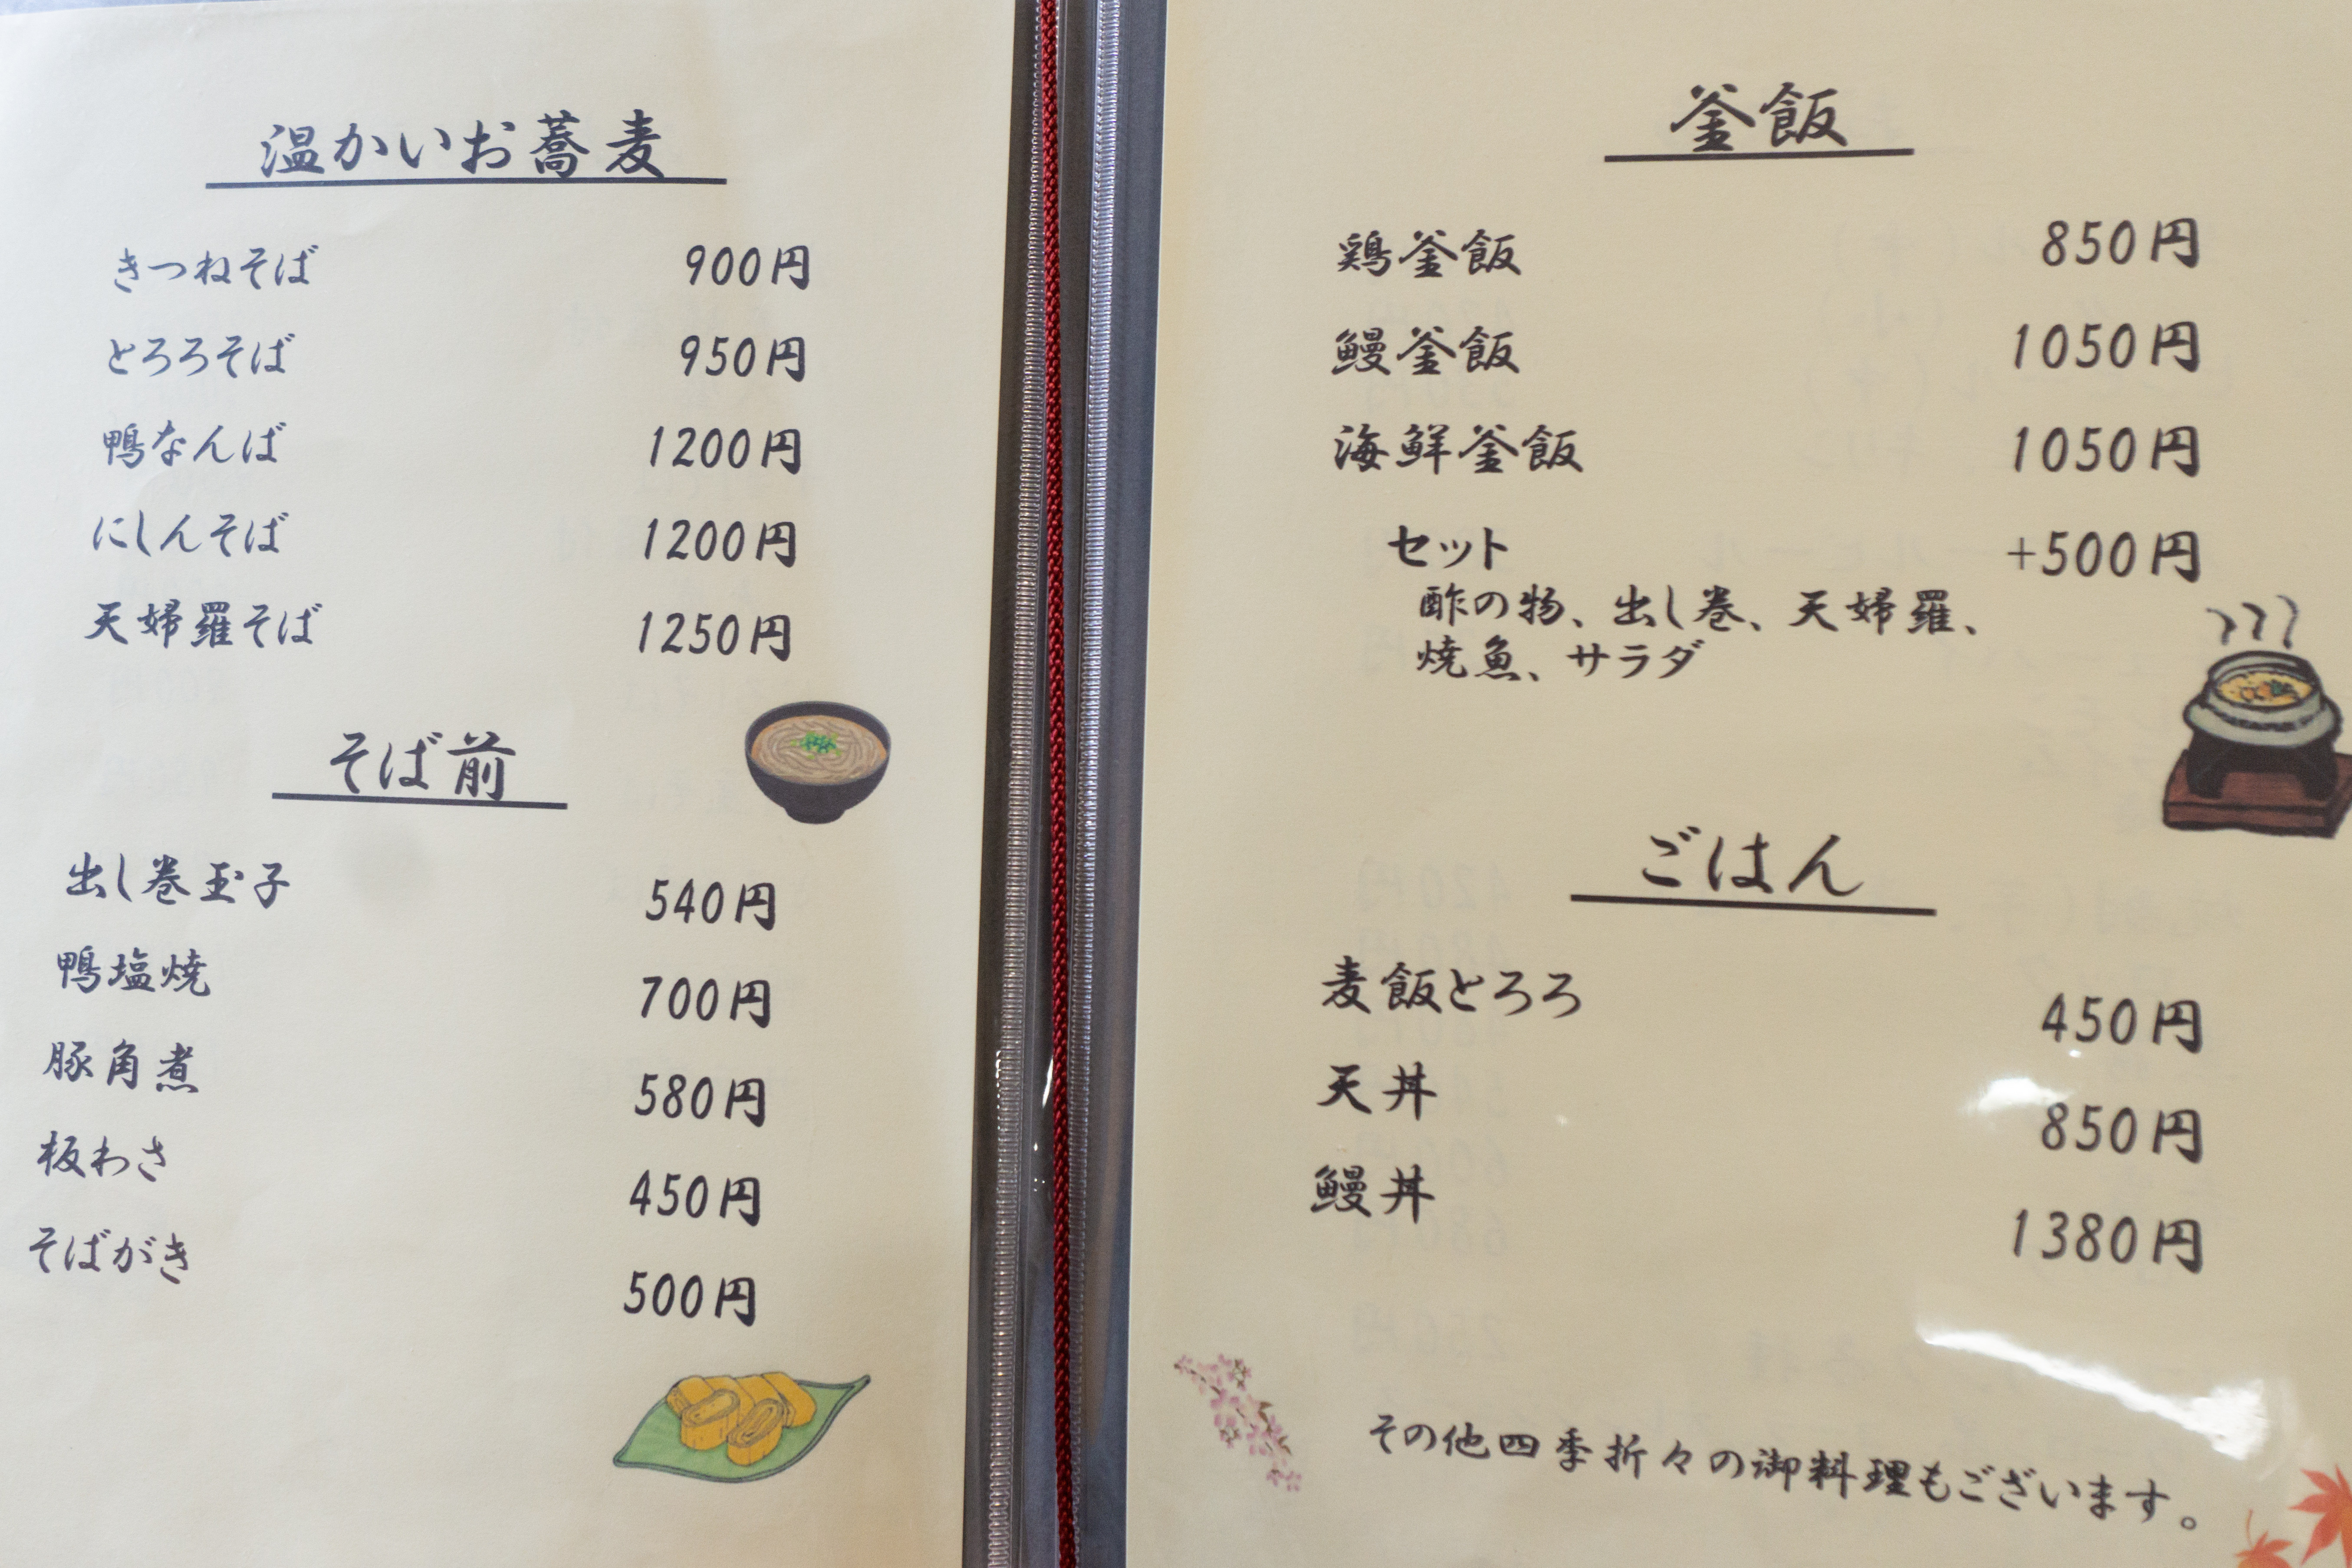 温かいお蕎麦
きつねそば 900円
とろろそば 950円
鴨なんば 1200円
にしんそば 1200円
天婦羅そば 1250円
そば前
出し巻玉子 540円
鴨塩焼 700円
豚角煮 580円
板わさ 450円
そばがき 500円
釜飯
鶏釜飯 850円
鰻釜飯 1050円
海鮮釜飯 1050円
セット +500円
酢の物、出し巻、天婦羅、
焼魚、サラダ
ごはん
麦飯とろろ 450円
天丼 850円
鰻丼 1380円
その他四季折々の御料理もございます。